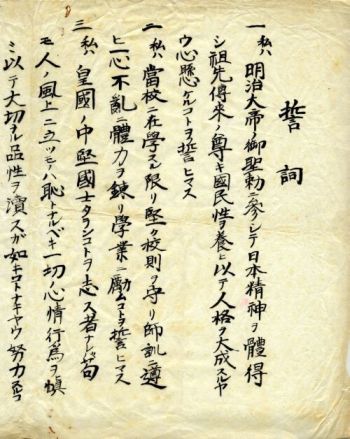 誓詞
一 私ハ 明治大帝ノ御聖勅ニ參シテ日本精神ヲ體得
シ祖先傳來ノ尊キ國民性ヲ養ヒ以テ人格ヲ大成スルヤ
ウ心懸ケルコトヲ誓ヒマス
二 私ハ 當校ニ在學スル限リ堅ク校則ヲ守リ師訓ニ遵
ヒ一心不亂ニ體力ヲ錬リ學業ニ勵ムコトヲ誓ヒマス
三 私ハ 皇國ノ中堅國士タランコトヲ志ス者ナレバ苟
モ人ノ風上ニ立ツモノハ恥トナルベキ一切ノ心情行爲ヲ愼
ミ以テ大切ナル品性ヲ瀆スガ如キコトナキヤウ努力スルコ